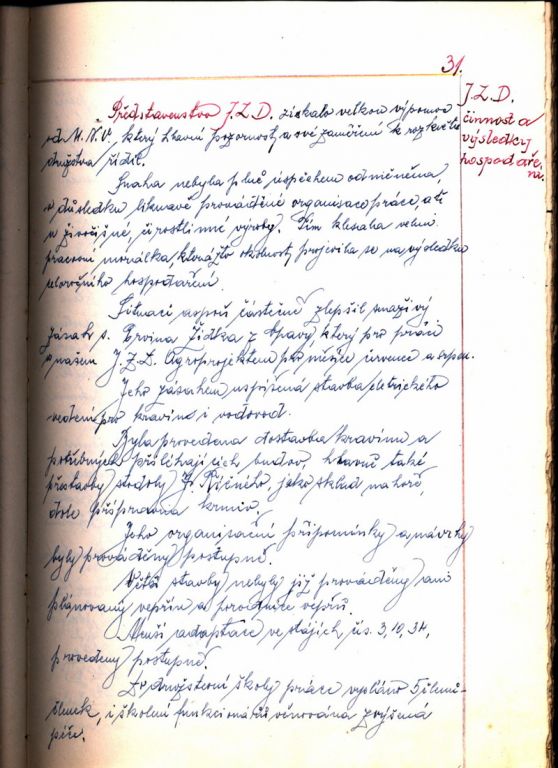 31.
J.Z.D.
činnost a
výsledky
hospodaře-
ní.
Představenstvo J.Z.D. získalo velkou výpomoc
od M.N.V. který hlavní pozornost a své zaměření k rozkvětu
družstva řídil.
Snaha nebyla plně úspěchem odměněna,
v důsledku liknavě prováděné organisace práce, ať
v živočišné, či rostlinné výroby. Tím klesala velmi
pracovní morálka, kterážto okolnost projevila se na výsledku
celoročního hospodaření.
Situaci aspoň částečně zlepšil snaživý
zásah s. Ervina Žídka z Opavy, který pro práci
v našem J.Z.D. Agroprojektem pro měsíce červenec a srpen.
Jeho zásahem uspíšená stavba elektrického
vedení pro kravín i vodovod.
Byla provedena dostavba kravínu a
potřebných přiléhajících budov, hlavně také
přestavby stodoly J. Říčného, jako sklad nahoře,
dole přípravna krmiv.
Jeho organisační připomínky a návrhy
byly prováděny postupně.
Větší stavby nebyly již prováděny ani
plánovaný vepřín a porodnice vepřů.
Menší adaptace ve stájích čís. 3, 10, 34,
provedeny postupně.
Do družstevní školy práce vysláno 5 členů-
členek, i školení funkcionářů věnována zvýšená
péče.